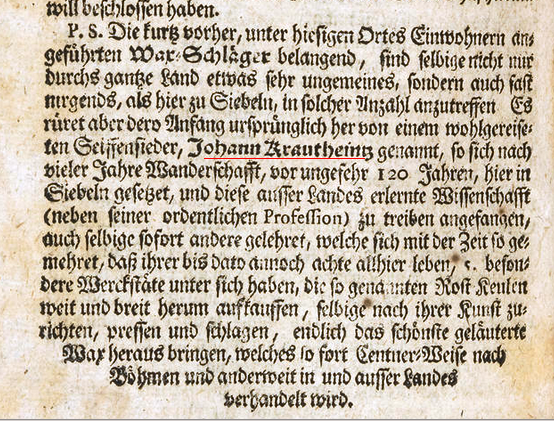 will beschlossen haben.
P. S. Die kurtz vorher, unter hiesigen Ortes Einwohnern an-
geführten Wax-Schläger belangend, sind selbige nicht nur
durchs gantze Land etwas sehr ungemeines, sondern auch fast
nirgends, als hier zu Siebeln, in solcher Anzahl anzutreffen Es
rüret aber dero Anfang ursprünglich her von einem wohlgereise-
ten Seiffensieder, Johann Krautheintz genannt, so sich nach
vieler Jahre Wanderschafft, vor ungefehr 120 Jahren, hier in
Siebeln gesetzet, und diese ausser Landes erlernte Wissenschafft
(neben seiner ordentlichen Profession) zu treiben angefangen,
auch selbige sofort andere gelehret, welche sich mit der Zeit so ge-
mehret, daß ihrer bis dato annoch achte allhier leben, 5. beson-
dere Werckstäte unter sich haben, die so genannten Rost Keulen
weit und breit herum auffkauffen, selbige nach ihrer Kunst zu-
richten, pressen und schlagen, endlich das schönste geläuterte
Wax heraus bringen, welches so fort Centner-Weise nach
Böhmen und anderweit in und ausser Landes
verhandelt wird.